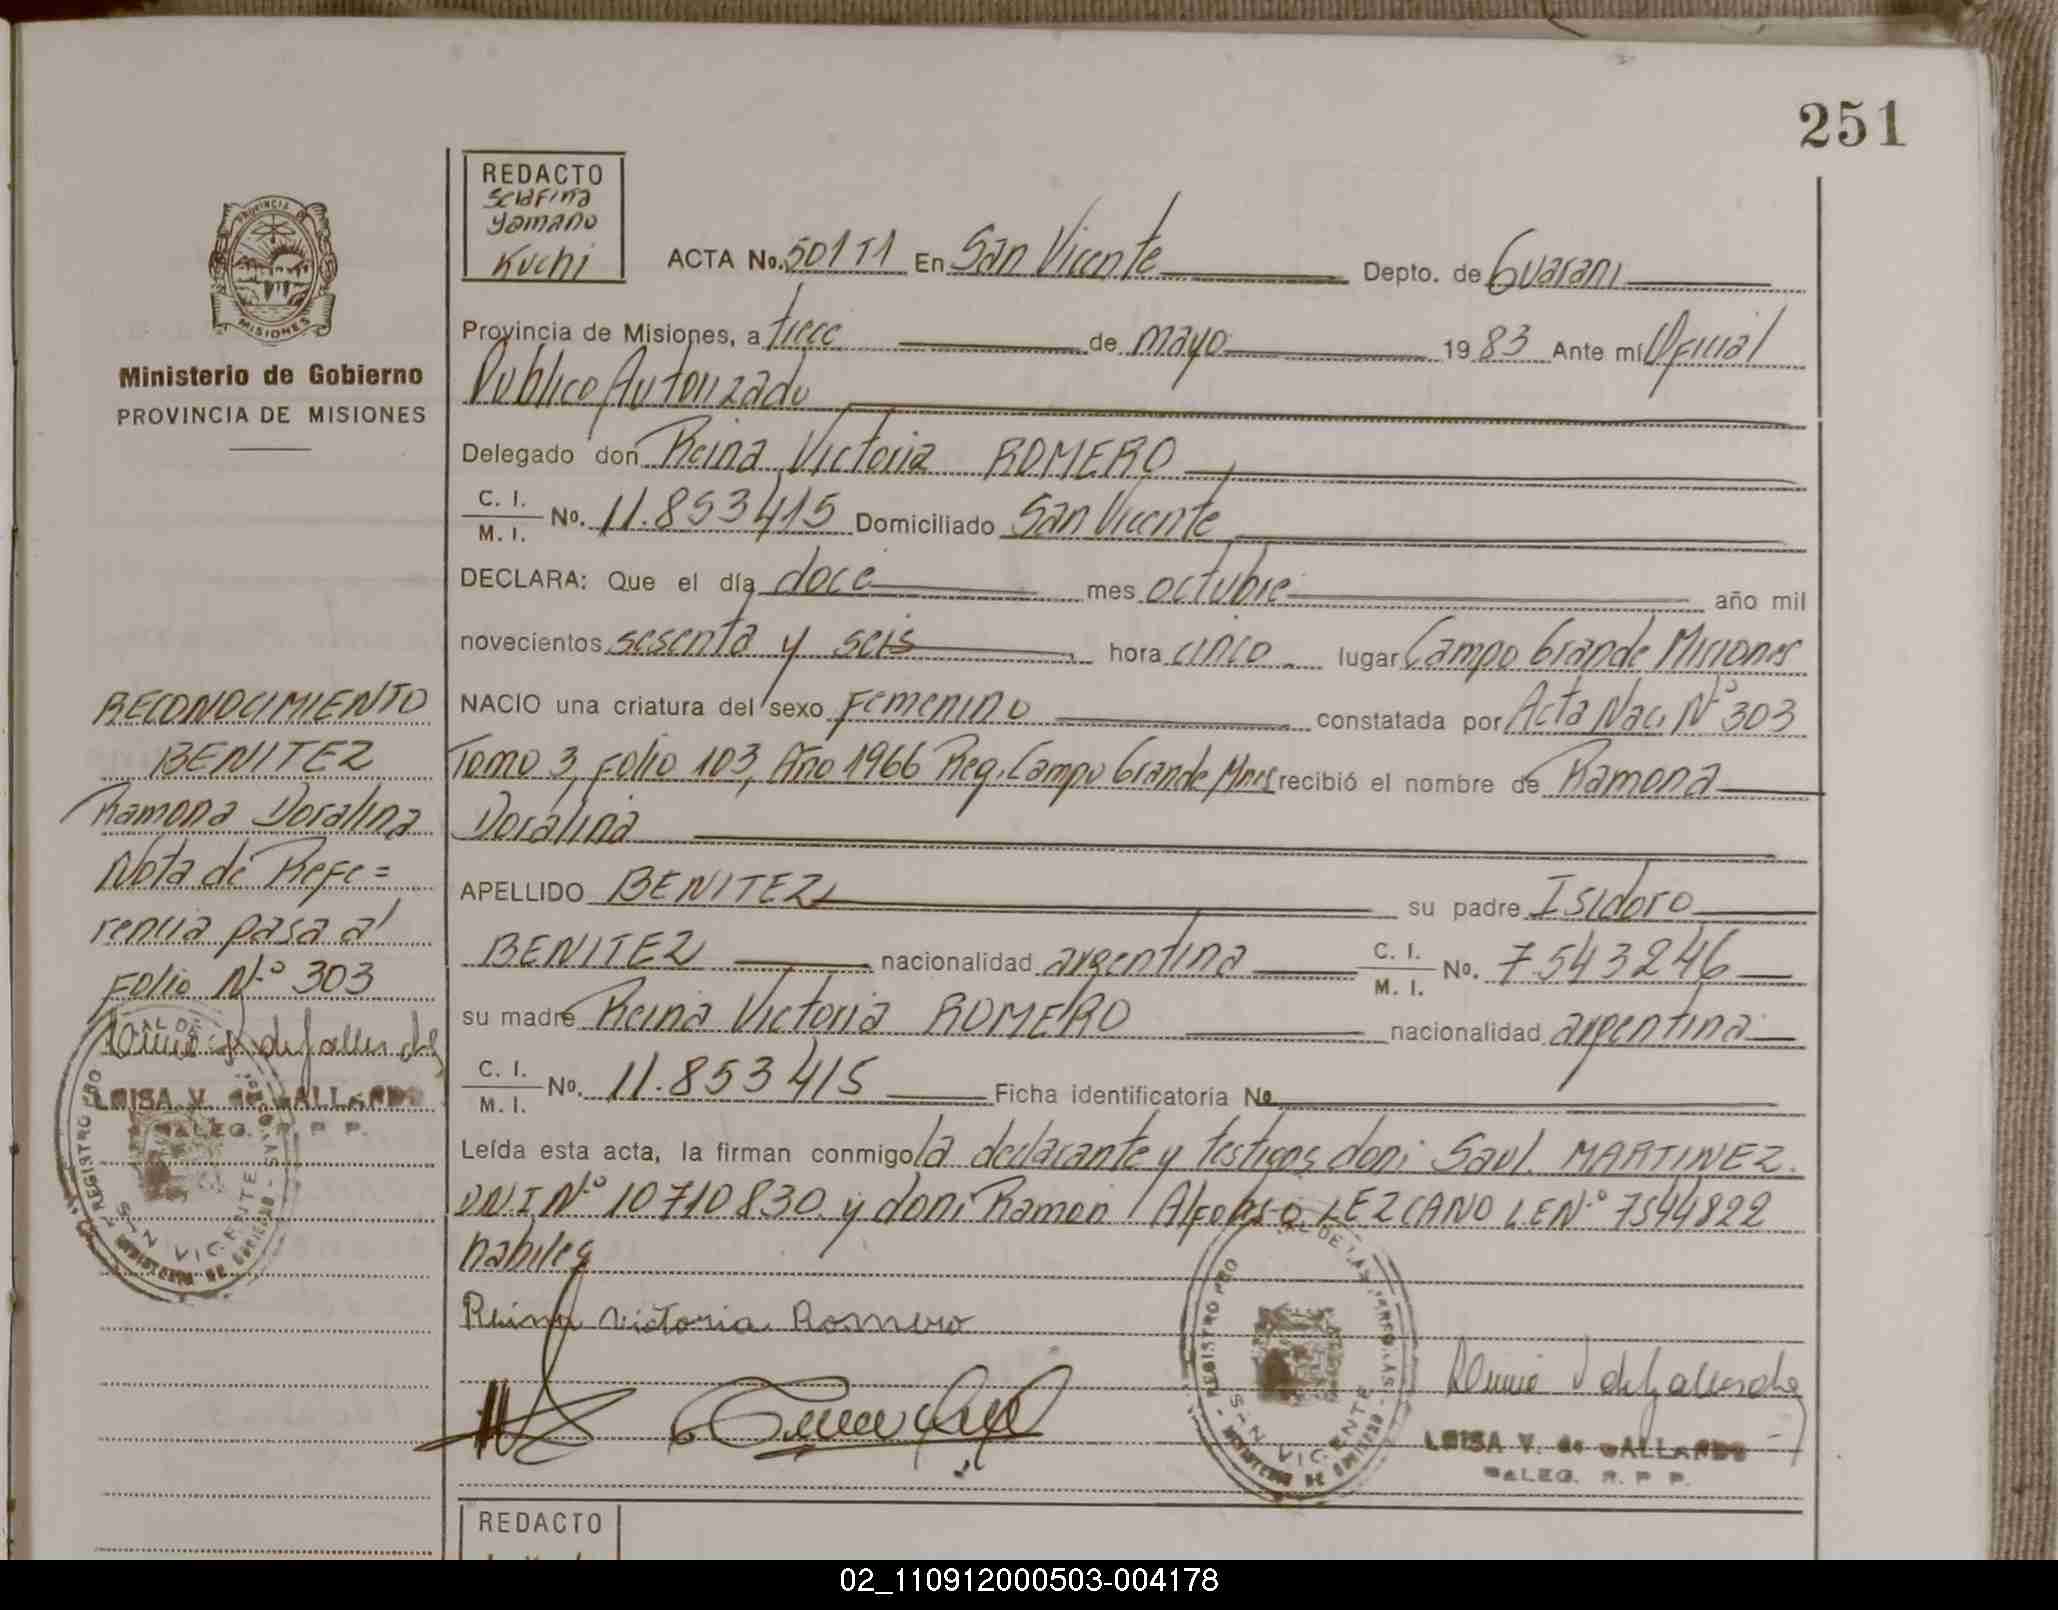 251
REDACTO
Serafina
Yamano
Kuchi
ACTA No. 501 T1 En San Vicente Depto. de Guarani
Provincia de Misiones, a trece de mayo 19 83 Ante mí Oficial
Publico Autorizado
Delegado don Reina Victoria ROMERO
C. I.
M. I. No. 11.853415 Domiciliado San Vicente
DECLARA: Que el día doce mes octubre año mil
novecientos sesenta y seis hora cinco lugar Campo Grande Misiones
NACIO una criatura del sexo Femenino constatada por Acta Nac. Nº 303
Tomo 3, Folio 103, Año 1966 Reg. Campo Grande Mnes recibió el nombre de Ramona
Doralina
APELLIDO BENITEZ su padre Isidoro
BENITEZ nacionalidad argentina C. I.
M. I. No. 7543246
su madre Reina Victoria ROMERO nacionalidad argentina
C. I.
M. I. No. 11.853415 Ficha identificatoria No
Leída esta acta, la firman conmigo la declarante y testigos don: Saul. MARTINEZ.
DNI Nº 10710830 y don: Ramon Alfonso LEZCANO LE Nº 7544822
habiles
Reina Victoria Romero
REGISTRO PRO
SAN VICENTE
MINISTERIO DE GOBIERNO
LUISA V. de GALLARDO
R. P. P.
REDACTO
PROVINCIA DE
MISIONES
Ministerio de Gobierno
PROVINCIA DE MISIONES
RECONOCIMIENTO
BENITEZ
Ramona Doralina
Nota de Refe=
rencia pasa al
Folio Nº 303
LUISA V. de GALLARDO
R. P. P.
REGISTRO PRO
SAN VICENTE
MINISTERIO DE GOBIERNO
02_110912000503-004178